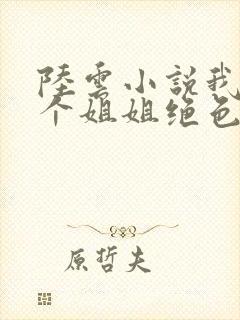 陸雲小說我
个姐姐绝色
原哲夫